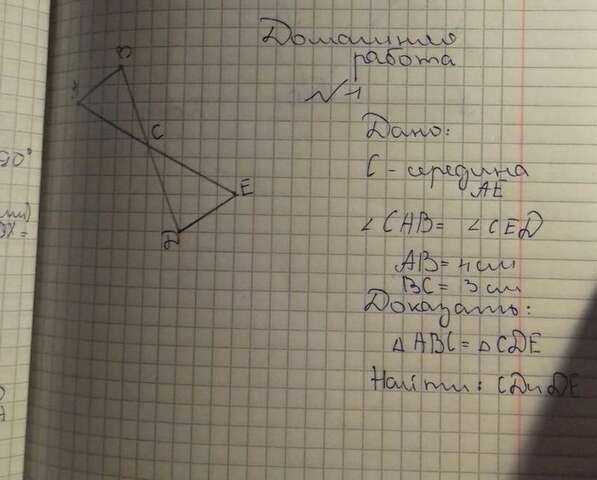 Домашняя
работа
№1
Дано:
C - середина
AE
∠CAB = ∠CED
AB = 4 см
BC = 3 см
Доказать:
△ABC = △CDE
Найти: CD и DE
B
A
C
E
D
50°